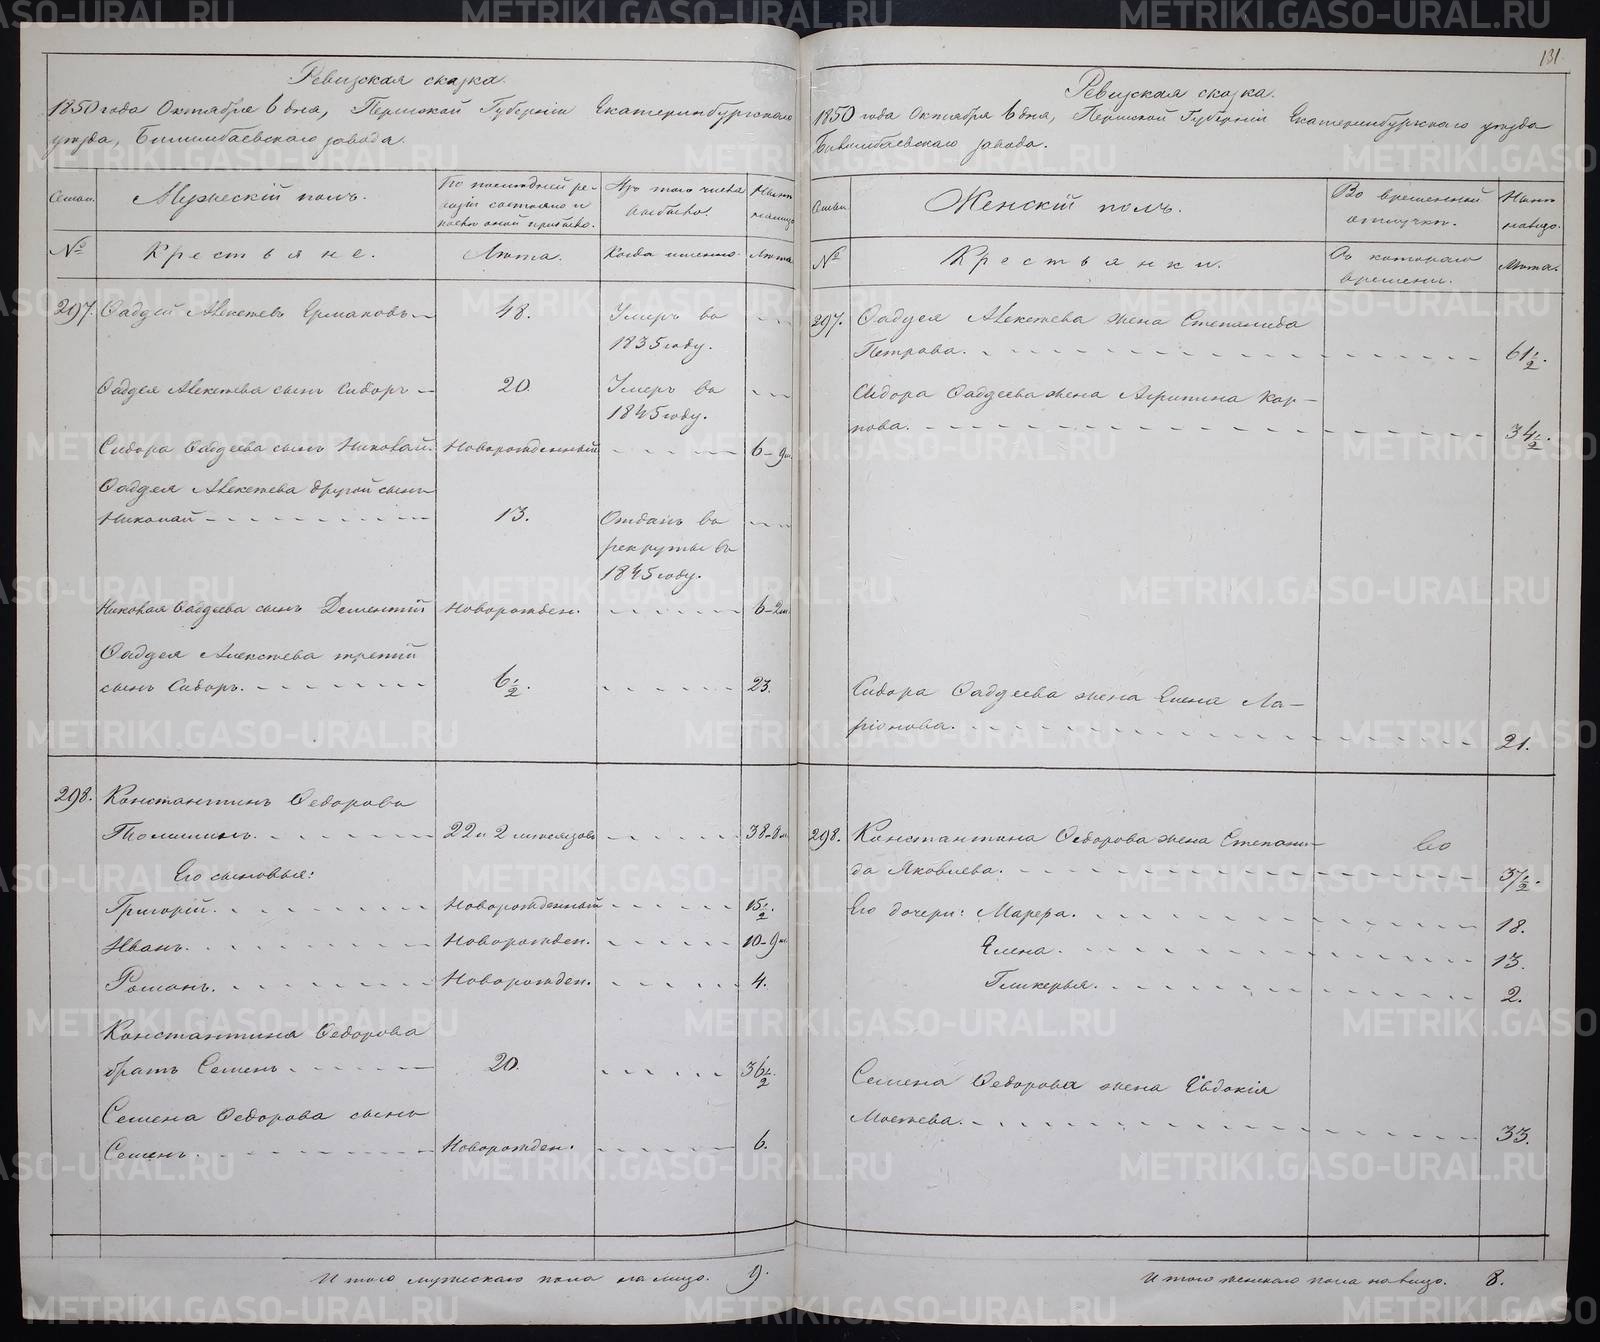 131
Ревизская сказка.
1850 года Октября 6 дня, Пермской Губернiи Екатеринбургскаго
уезда, Билимбаевскаго завода.
Семьи. Мужескiй полъ. По последней ре- Изъ того числа Ныне
визiи состояло и выбыло. налицо.
после оной прибыло.
№ Крестьяне. Лета. Когда именно. Лета
297. Фадей Алексеевъ Ермаковъ 48. Умеръ въ
1835 году.
Фаддея Алексеева сынъ Сидоръ 20. Умеръ въ
1845 году.
Сидора Фаддеева сынъ Николай. Новорожденный 6-9м.
Фаддея Алексеева другой сынъ
Николай 13. Отданъ въ
рекруты въ
1845 году.
Николая Фаддеева сынъ Дементiй Новорожден. 6-2м.
Фаддея Алексеева третiй
сынъ Сидоръ. 6 1/2. 23.
298. Константинъ Федоровъ
22 и 2 месяцовъ 38-
Его сыновья:
Григорiй. Новорожденный 15 1/2.
Иванъ. Новорожден. 10-9м.
Романъ. Новорожден. 4.
Константина Федорова
братъ Семенъ 20. 36 1/2.
Семена Федорова сынъ
Семенъ. Новорожден. 6.
Итого мужескаго пола на лицо. 9.
Ревизская сказка.
1850 года Октября 6 дня, Пермской Губернiй Екатеринбургскаго уезда
Билимбаевскаго завода.
Семьи. Женскiй полъ. Во временной Ныне
отлучке. налицо.
№ Крестьянки. Съ котораго Лета.
времени.
297. Фаддея Алексеева жена Степанида
Петрова. 61 1/2.
Сидора Фаддеева жена Агрипина Кар-
пова. 34 1/2.
Сидора Фаддеева жена Елена Ла-
рiонова. 21.
298. Константина Федорова жена Степани-
да Яковлева. 37 1/2.
Его дочери: Марфа. 18.
Елена. 13.
Гликерья. 2.
Семена Федорова жена Евдокiя
Моисеева. 33.
Итого женскаго пола налицо. 8.
METRIKI.GASO-URAL.RU